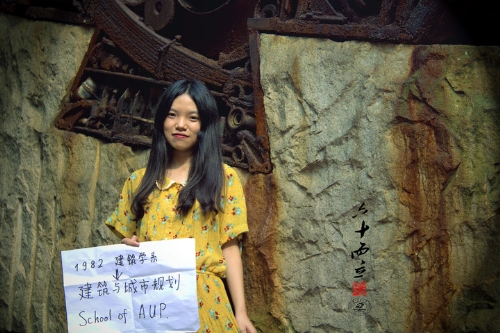 1982 建筑学系
建筑与城市规划
School of A.U.P.
六十